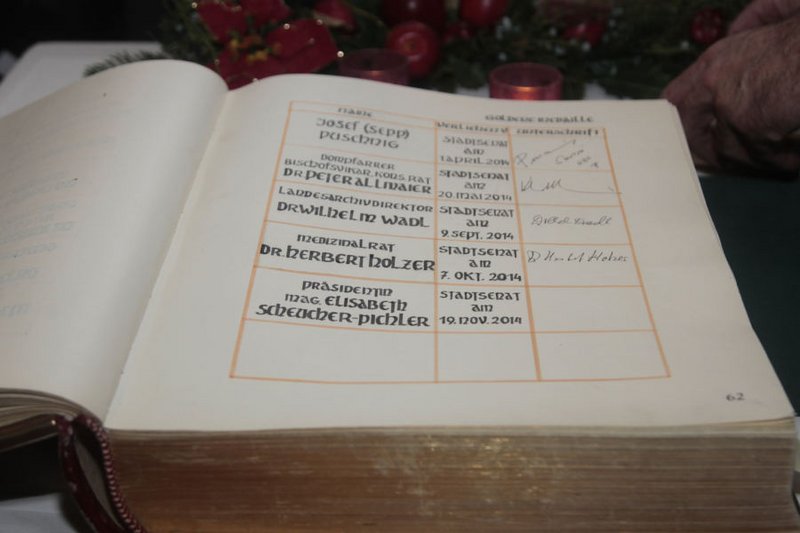 NAME
GOLDENE MEDAILLE
VERLIEHEN V.
UNTERSCHRIFT
JOSEF (SEPP)
PUSCHNIG
STADTSENAT
AM
1. APRIL 2014
DOMPFARRER
BISCHOFSVIKAR, KONS. RAT
DR PETER ALLMAIER
STADTSENAT
AM
20. MAI 2014
LANDESARCHIVDIREKTOR
DR WILHELM WADL
STADTSENAT
AM
9. SEPT. 2014
MEDIZINALRAT
DR. HERBERT HOLZER
STADTSENAT
AM
7. OKT. 2014
Dr Herbert Holzer
PRÄSIDENTIN
MAG. ELISABETH
SCHEUCHER-PICHLER
STADTSENAT
AM
19. NOV. 2014
62